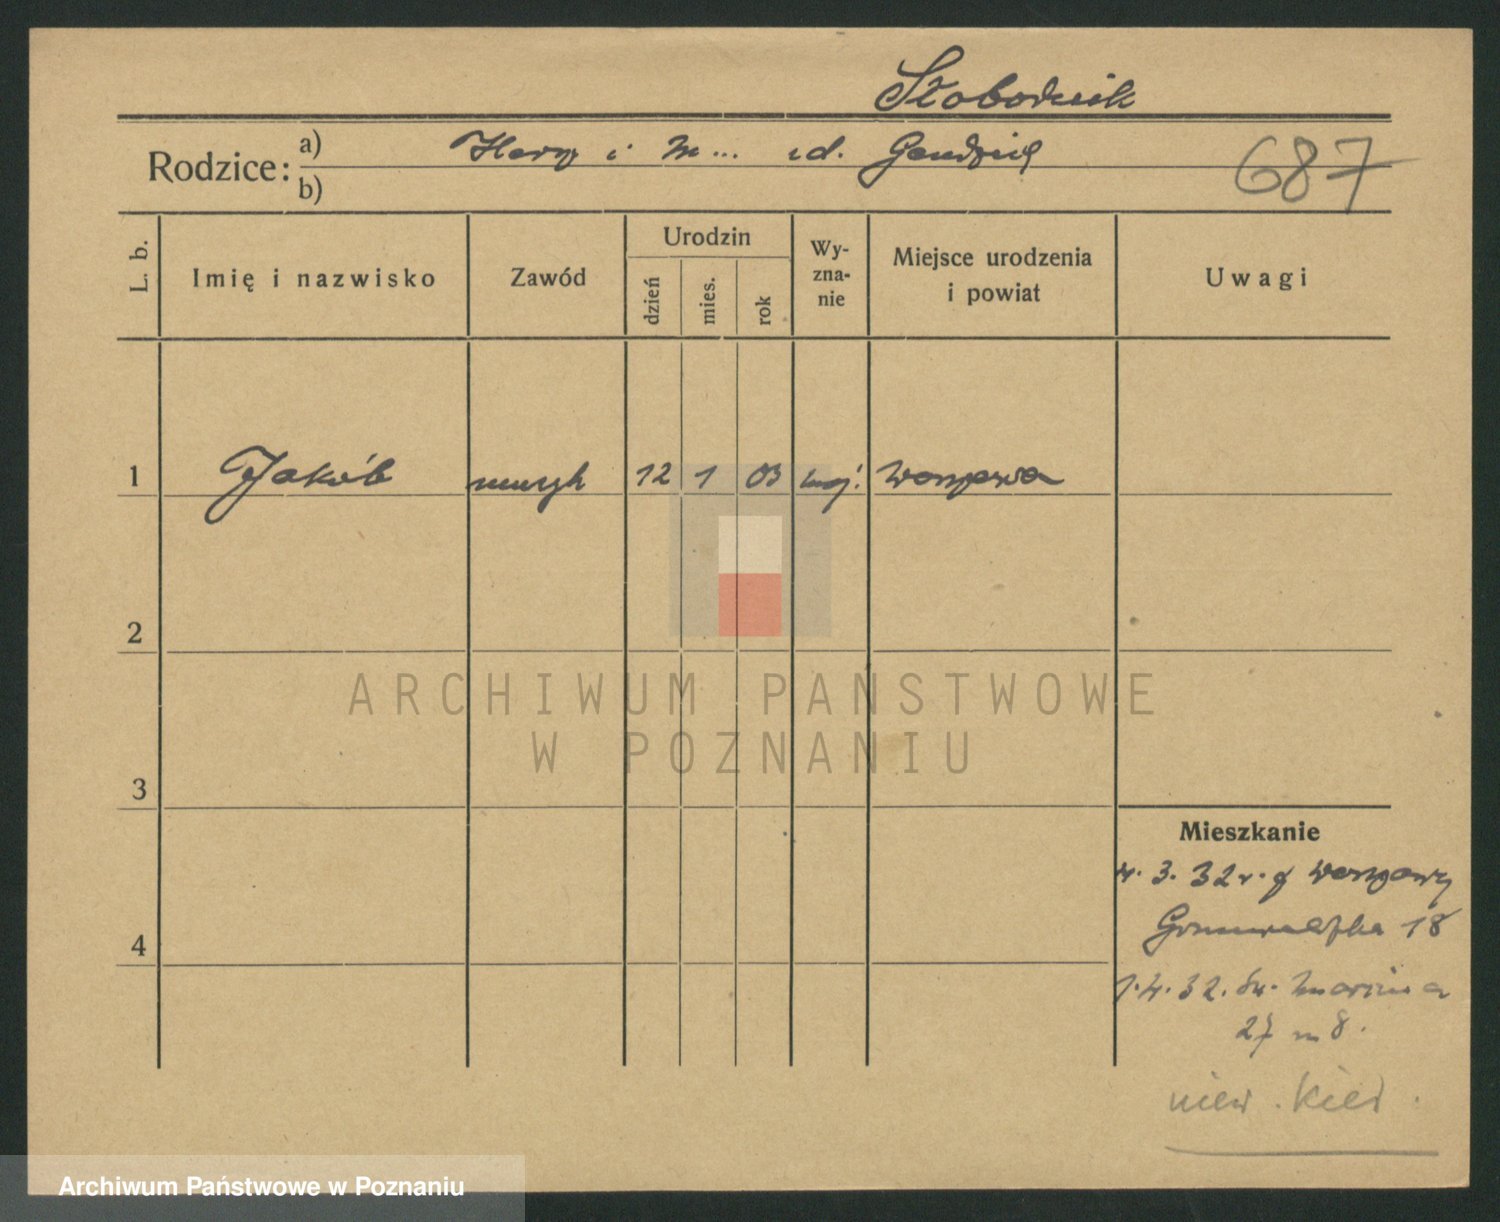 Słobodnik
Rodzice: a) Herz i M... zd. Gendzieł
b)
687
L. b.
Imię i nazwisko
Zawód
Urodzin
dzień
mies.
rok
Wy-
zna-
nie
Miejsce urodzenia
i powiat
Uwagi
1 Jakób muzyk 12 1 03 moj. Warszawa
2
3
4
ARCHIWUM PAŃSTWOWE
W POZNANIU
Mieszkanie
4. 3. 32 r. z Warszawy
Grunwaldzka 18
1. 4. 32. Św. Marcina
27 m 8.
niew. kier.
Archiwum Państwowe w Poznaniu